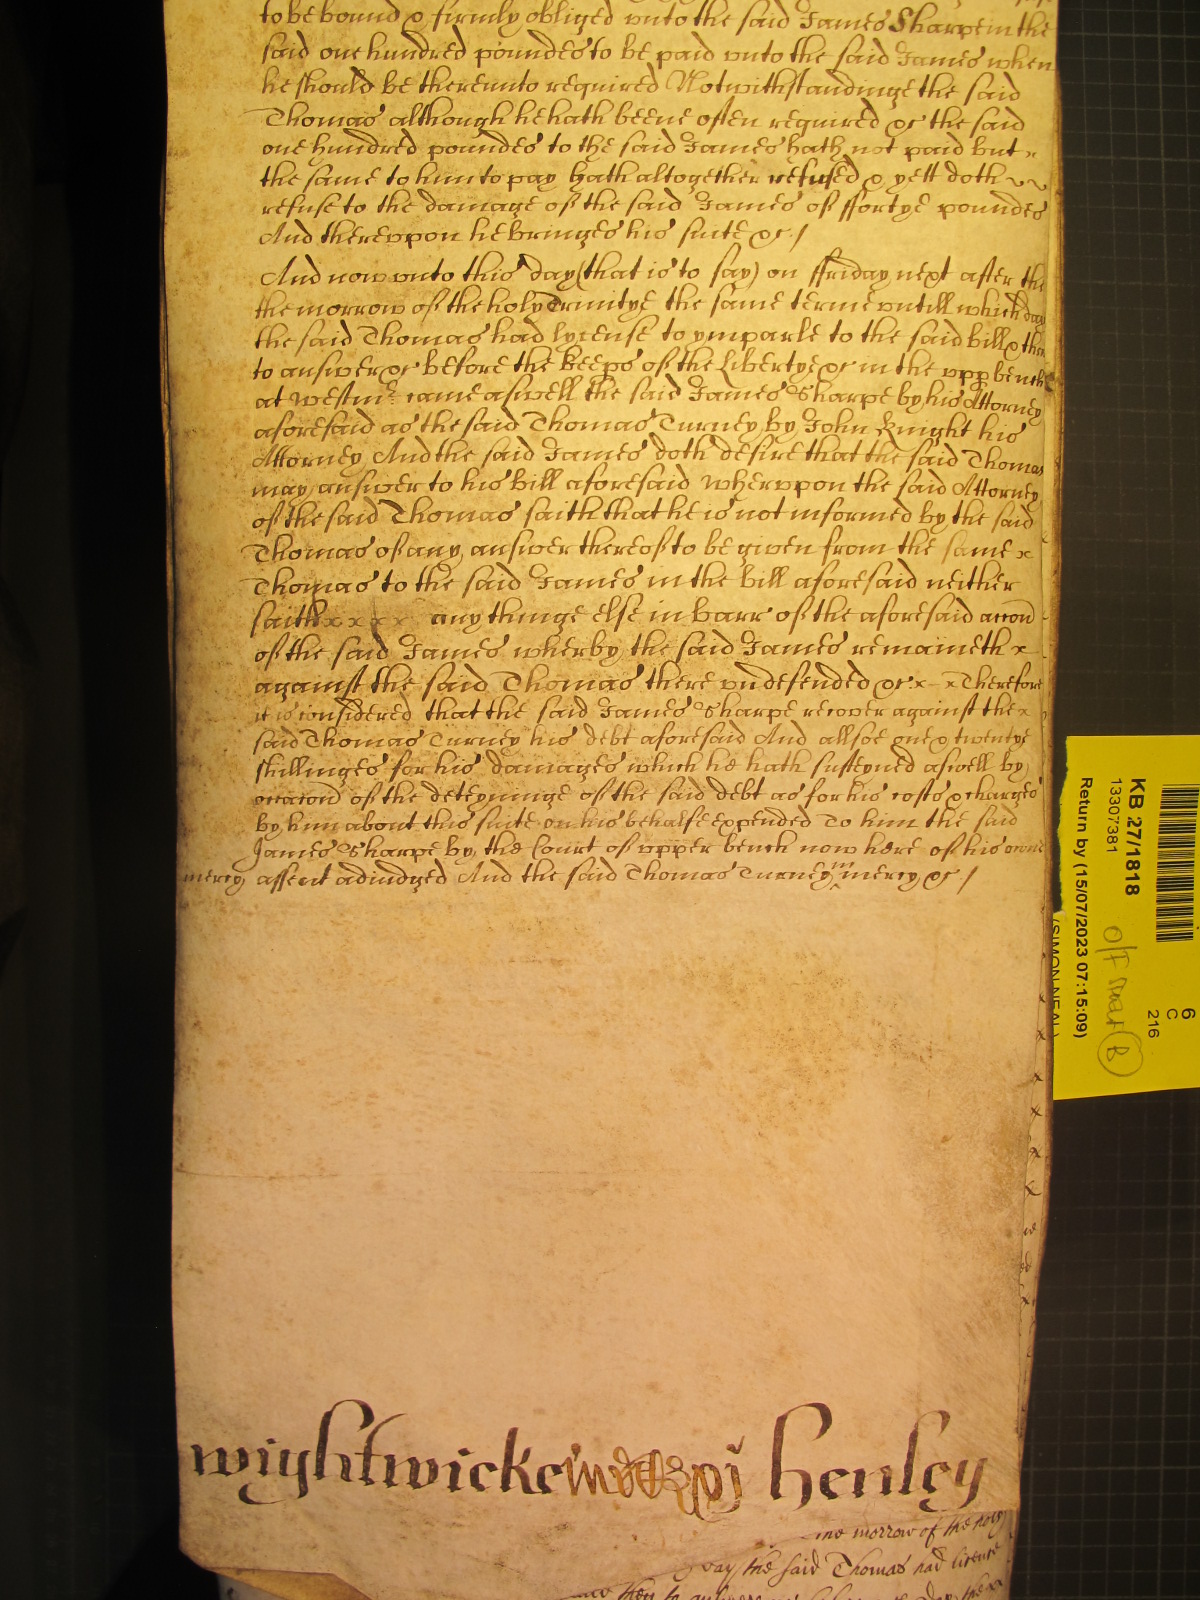 to be bound & firmly obliged vnto the said James Sharpe in the
said one hundred poundes to be paid vnto the said James when
he should be therevnto required Notwithstandinge the said
Thomas although he hath beene often required &c the said
one hundred poundes to the said James hath not paid but
the same to him to pay hath altogether refused & yett doth
refuse to the damage of the said James of ffortye poundes
And therevppon he bringes his suite &c /
And now vnto this day (that is to say) on ffriday next after the
the morrow of the holy Trinitye the same terme vntill which day
the said Thomas had lycense to ymparle to the said bill & then
to answer &c before the keeps of the libertye &c in the vpp bench
at Westmr came aswell the said James Sharpe by his Attorney
aforesaid as the said Thomas Turney by John Knight his
Attorney And the said James doth desire that the said Thomas
may answer to his bill aforesaid Whervpon the said Attorney
of the said Thomas saith that he is not informed by the said
Thomas of any answer thereof to be given from the same x
Thomas to the said James in the bill aforesaid neither
saith x x x x any thinge else in barr of the aforesaid accon
of the said James wherby the said James remaineth x
against the said Thomas there vndefended &c x - x Therefore
it is considered that the said James Sharpe recover against the x
said Thomas Turney his debt aforesaid And allsoe one & twentye
shillinges for his damages which he hath susteyned aswell by
occacion of the deteyninge of the said debt as for his costs & charges
by him about this suite on his behalfe expended To him the said
James Sharpe by the Court of vpper bench now here of his owne
mercy assent adiudged And the said Thomas Turney in mercy &c /
wightwicke henley
the morrow of the holy
day the said Thomas had licence
KB 27/1818
13307381
Return by (15/07/2023 07:15:09)
(SIMON NEAL)
6
C
216